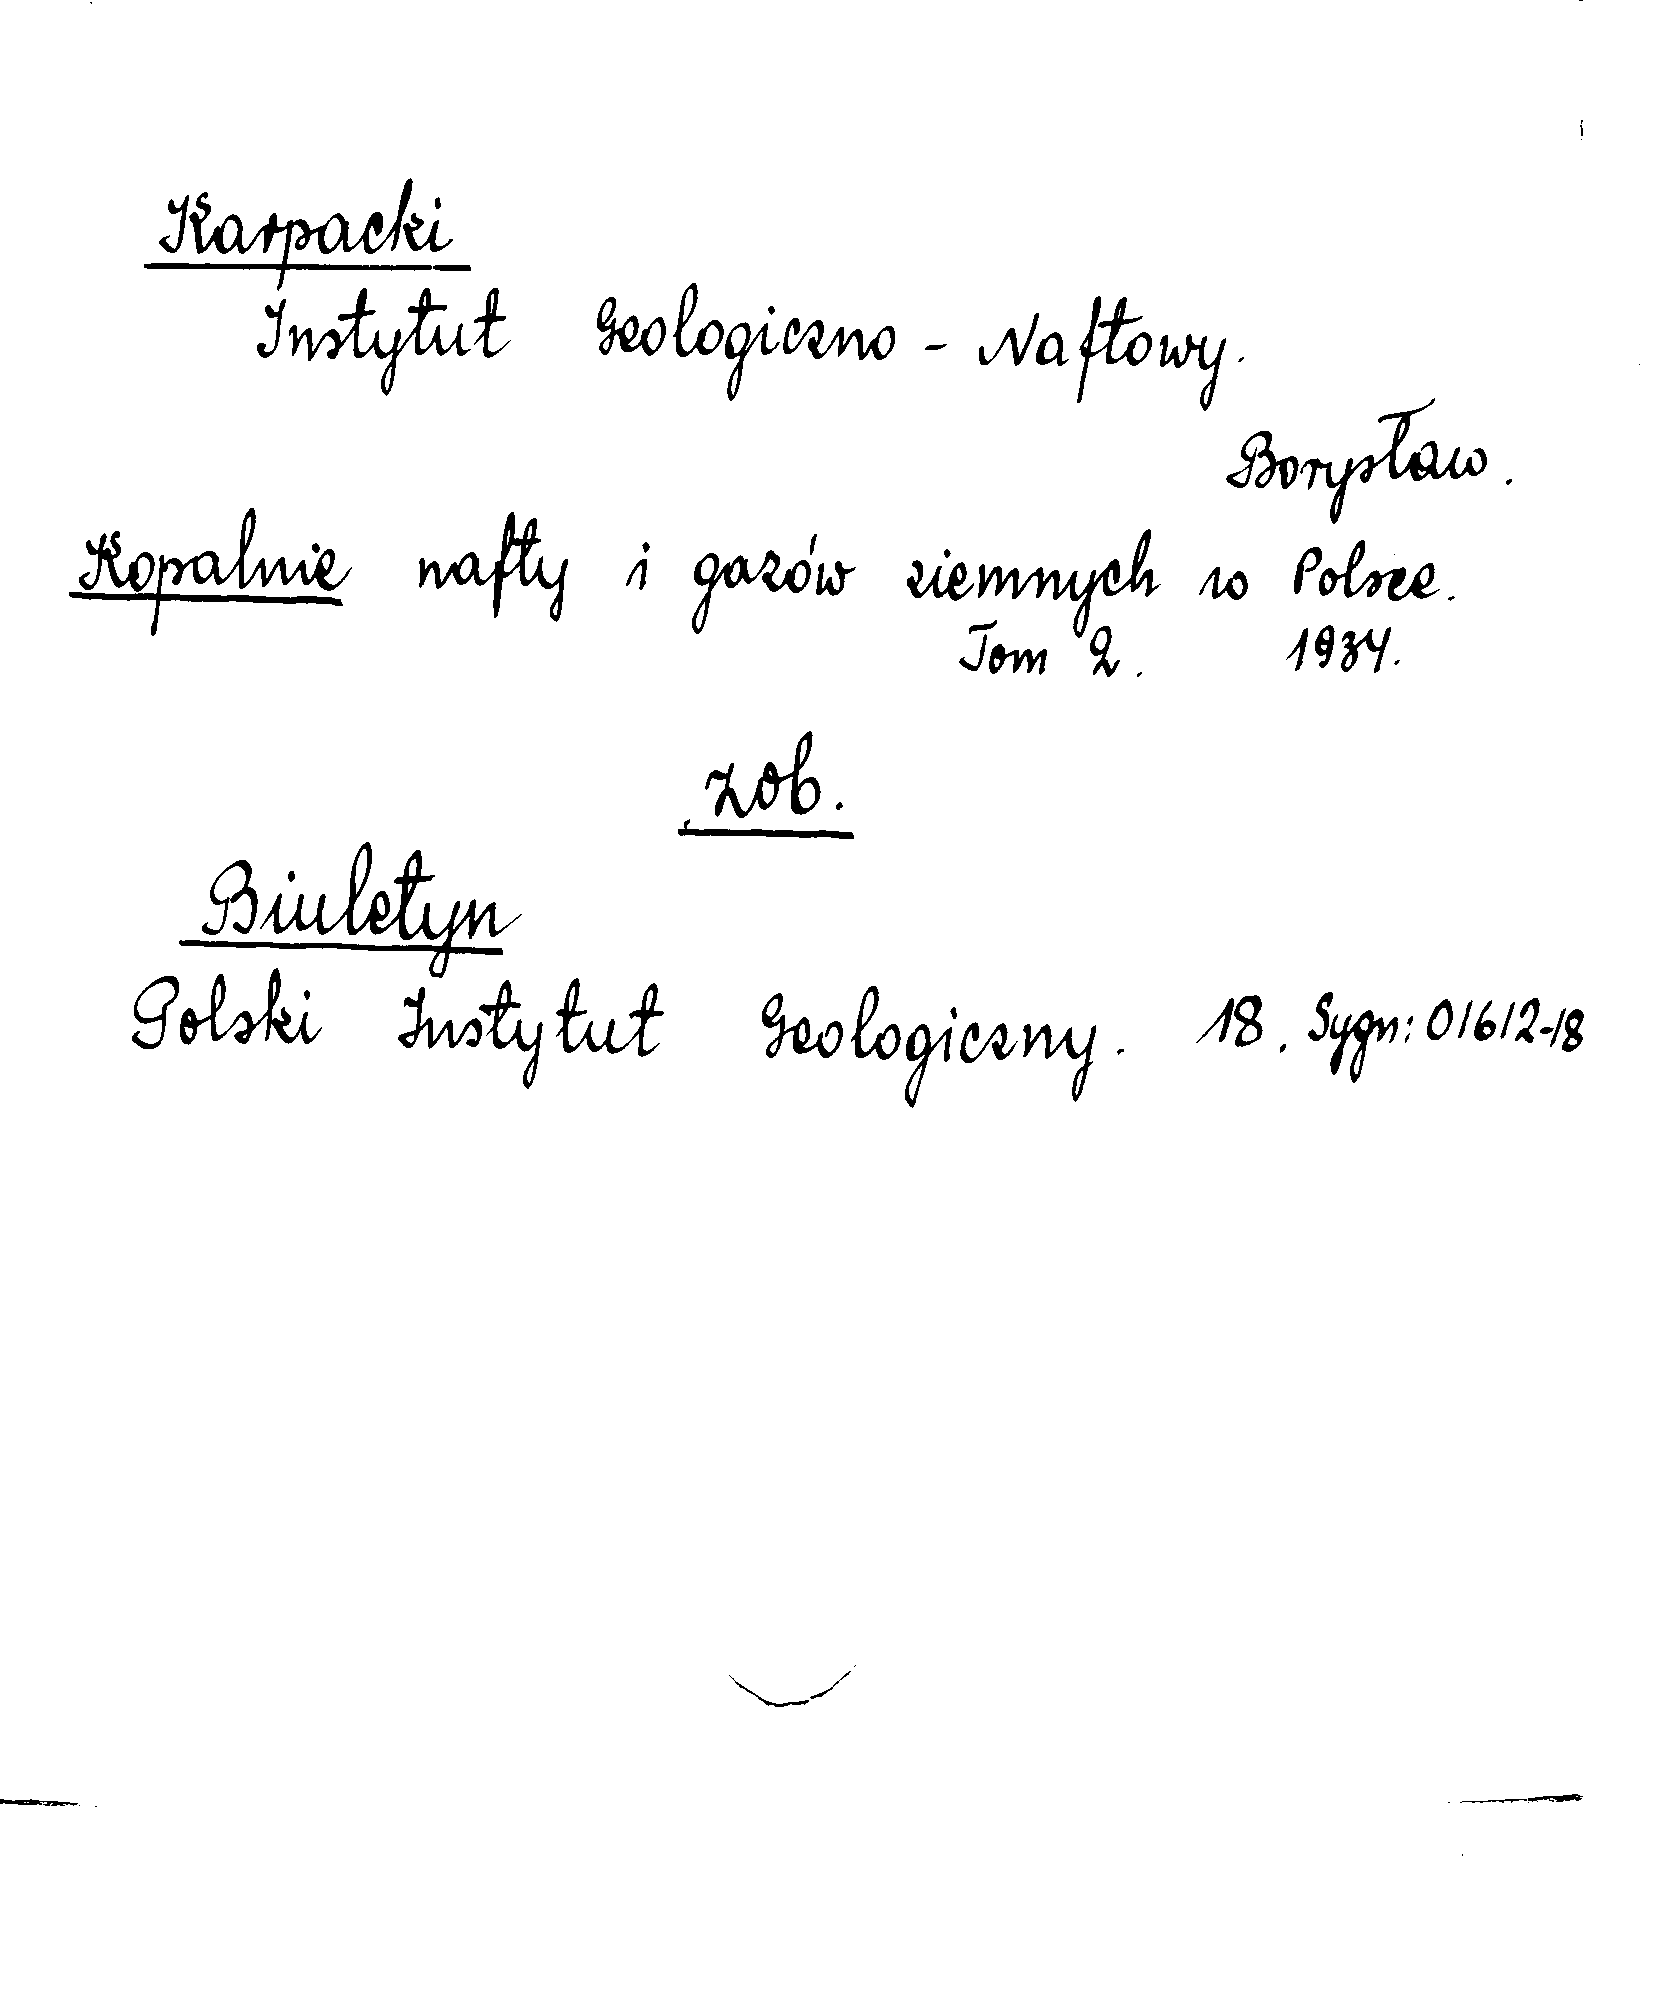 Karpacki
Instytut Geologiczno - Naftowy.
Borysław.
Kopalnie nafty i gazów ziemnych w Polsce.
Tom 2. 1934.
zob.
Biuletyn
Polski Instytut Geologiczny. 18. Sygn: 01612-18